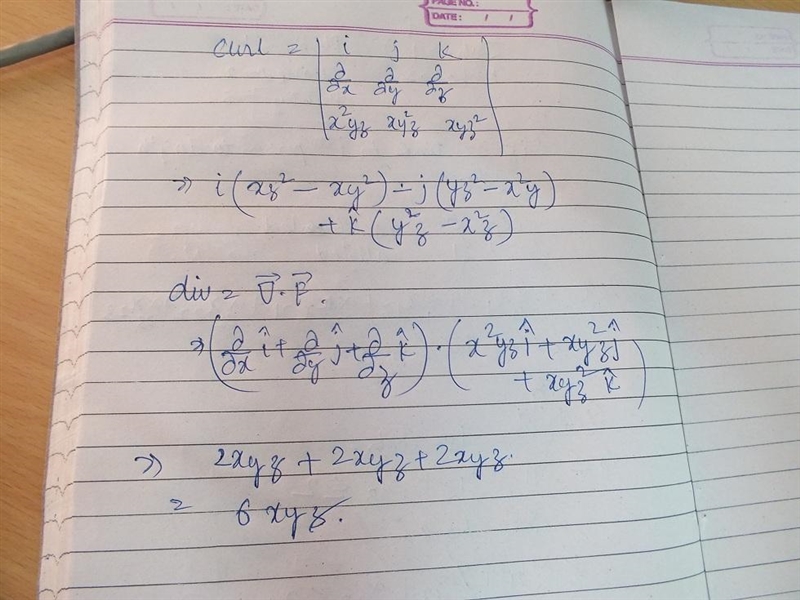 PAGE NO.:
DATE: / /
curl = | i j k |
∂/∂x ∂/∂y ∂/∂z
x²yz xy²z xyz²
⇒ i(xz² − xy²) − j(yz² − x²y)
+ k̂(y²z − x²z)
div = ∇⃗·F⃗.
⇒ (∂/∂x î + ∂/∂y ĵ + ∂/∂z k̂)·(x²yz î + xy²z ĵ
+ xyz² k̂)
⇒ 2xyz + 2xyz + 2xyz.
= 6 xyz.